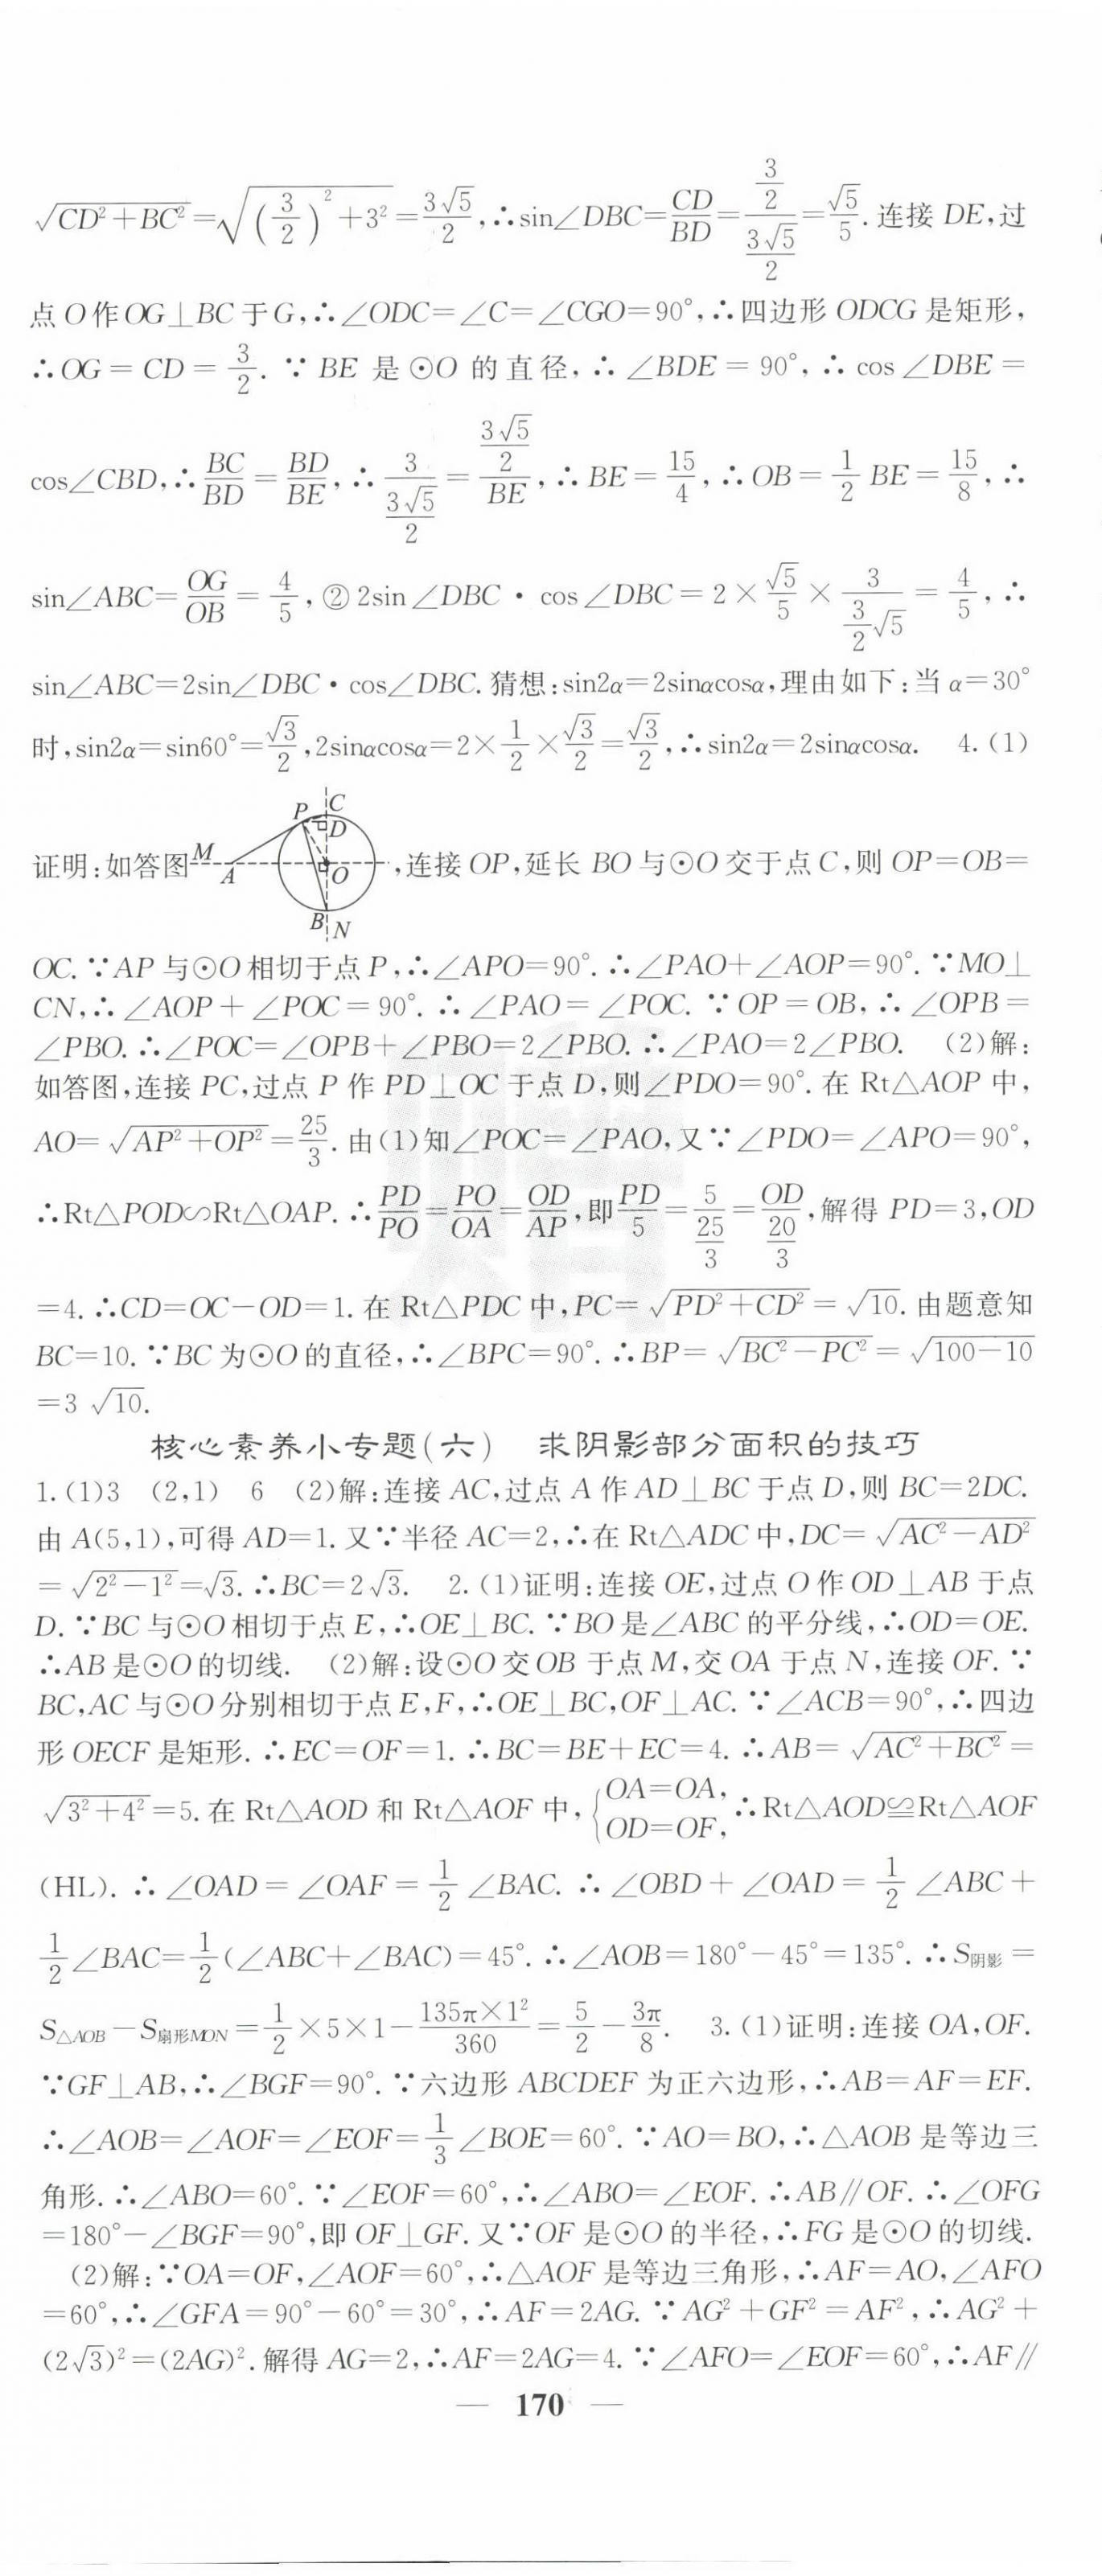 √(CD²+BC²)=√((3/2)²+3²)=3√5/2,∴sin∠DBC=CD/BD=(3/2)/(3√5/2)=√5/5.连接 DE,过
点O作OG⊥BC于G,∴∠ODC=∠C=∠CGO=90°,∴四边形 ODCG 是矩形,
∴OG=CD=3/2.∵BE 是⊙O 的直径,∴∠BDE=90°,∴cos∠DBE=
cos∠CBD,∴BC/BD=BD/BE,∴3/(3√5/2)=(3√5/2)/BE,∴BE=15/4,∴OB=1/2 BE=15/8,∴
sin∠ABC=OG/OB=4/5,②2sin∠DBC·cos∠DBC=2×√5/5×3/(3/2 √5)=4/5,∴
sin∠ABC=2sin∠DBC·cos∠DBC.猜想:sin2α=2sinαcosα,理由如下:当 α=30°
时,sin2α=sin60°=√3/2,2sinαcosα=2×1/2×√3/2=√3/2,∴sin2α=2sinαcosα. 4.(1)
P C
D
证明:如答图 M A O ,连接 OP,延长 BO 与⊙O 交于点 C,则 OP=OB=
B N
OC.∵AP 与⊙O 相切于点 P,∴∠APO=90°.∴∠PAO+∠AOP=90°.∵MO⊥
CN,∴∠AOP+∠POC=90°.∴∠PAO=∠POC.∵OP=OB,∴∠OPB=
∠PBO.∴∠POC=∠OPB+∠PBO=2∠PBO.∴∠PAO=2∠PBO. (2)解:
如答图,连接 PC,过点 P 作 PD⊥OC 于点 D,则∠PDO=90°.在 Rt△AOP 中,
AO=√(AP²+OP²)=25/3.由(1)知∠POC=∠PAO,又∵∠PDO=∠APO=90°,
∴Rt△POD∽Rt△OAP.∴PD/PO=PO/OA=OD/AP,即PD/5=5/(25/3)=OD/(20/3),解得 PD=3,OD
=4.∴CD=OC-OD=1.在 Rt△PDC 中,PC=√(PD²+CD²)=√10.由题意知
BC=10.∵BC 为⊙O 的直径,∴∠BPC=90°.∴BP=√(BC²-PC²)=√(100-10)
=3√10.
核心素养小专题(六) 求阴影部分面积的技巧
1.(1)3 (2,1) 6 (2)解:连接 AC,过点 A 作 AD⊥BC 于点 D,则 BC=2DC.
由 A(5,1),可得 AD=1.又∵半径 AC=2,∴在 Rt△ADC 中,DC=√(AC²-AD²)
=√(2²-1²)=√3.∴BC=2√3. 2.(1)证明:连接 OE,过点 O 作 OD⊥AB 于点
D.∵BC 与⊙O 相切于点 E,∴OE⊥BC.∵BO 是∠ABC 的平分线,∴OD=OE.
∴AB 是⊙O 的切线. (2)解:设⊙O 交 OB 于点 M,交 OA 于点 N,连接 OF.∵
BC,AC 与⊙O 分别相切于点 E,F,∴OE⊥BC,OF⊥AC.∵∠ACB=90°,∴四边
形 OECF 是矩形.∴EC=OF=1.∴BC=BE+EC=4.∴AB=√(AC²+BC²)=
√(3²+4²)=5.在 Rt△AOD 和 Rt△AOF 中,{OA=OA, OD=OF,∴Rt△AOD≌Rt△AOF
(HL).∴∠OAD=∠OAF=1/2∠BAC.∴∠OBD+∠OAD=1/2∠ABC+
1/2∠BAC=1/2(∠ABC+∠BAC)=45°.∴∠AOB=180°-45°=135°.∴S阴影=
S△AOB-S扇形MON=1/2×5×1-135π×1²/360=5/2-3π/8. 3.(1)证明:连接 OA,OF.
∵GF⊥AB,∴∠BGF=90°.∵六边形 ABCDEF 为正六边形,∴AB=AF=EF.
∴∠AOB=∠AOF=∠EOF=1/3∠BOE=60°.∵AO=BO,∴△AOB 是等边三
角形.∴∠ABO=60°.∵∠EOF=60°,∴∠ABO=∠EOF.∴AB∥OF.∴∠OFG
=180°-∠BGF=90°,即 OF⊥GF.又∵OF 是⊙O 的半径,∴FG 是⊙O 的切线.
(2)解:∵OA=OF,∠AOF=60°,∴△AOF 是等边三角形,∴AF=AO,∠AFO
=60°,∴∠GFA=90°-60°=30°,∴AF=2AG.∵AG²+GF²=AF²,∴AG²+
(2√3)²=(2AG)².解得 AG=2,∴AF=2AG=4.∵∠AFO=∠EOF=60°,∴AF∥
— 170 —